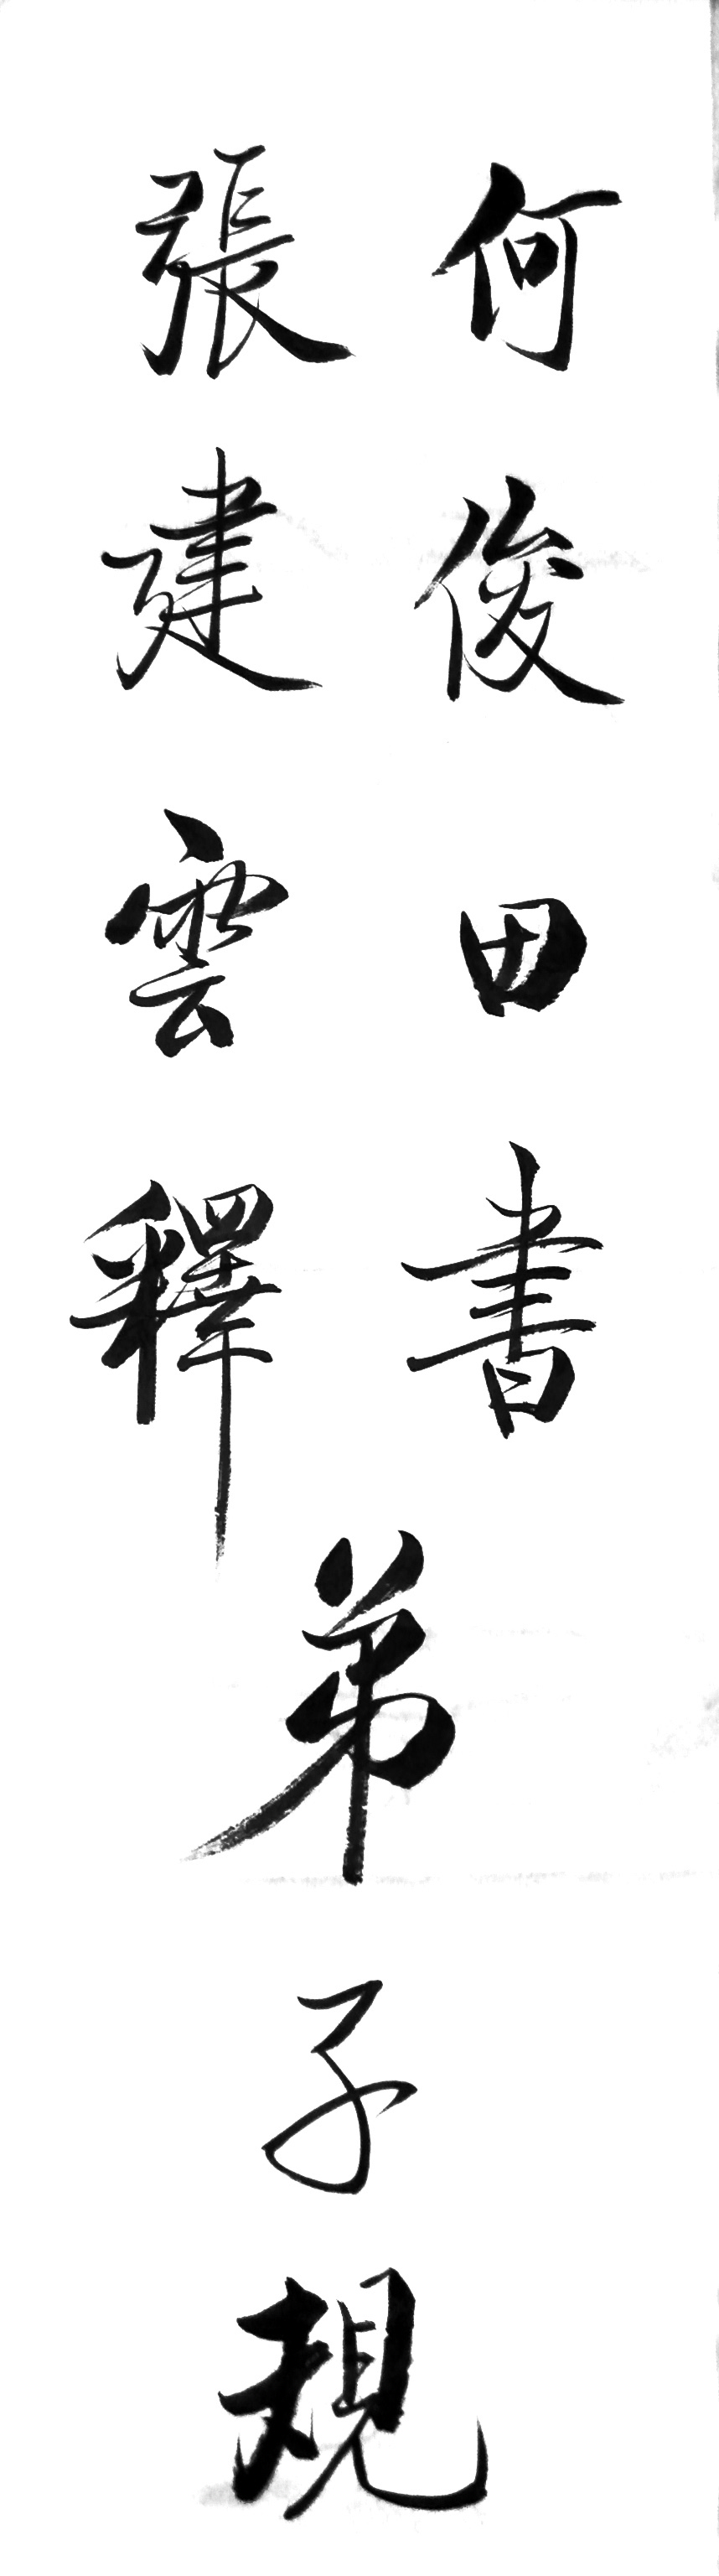 何俊田書
張建雲釋
弟子規